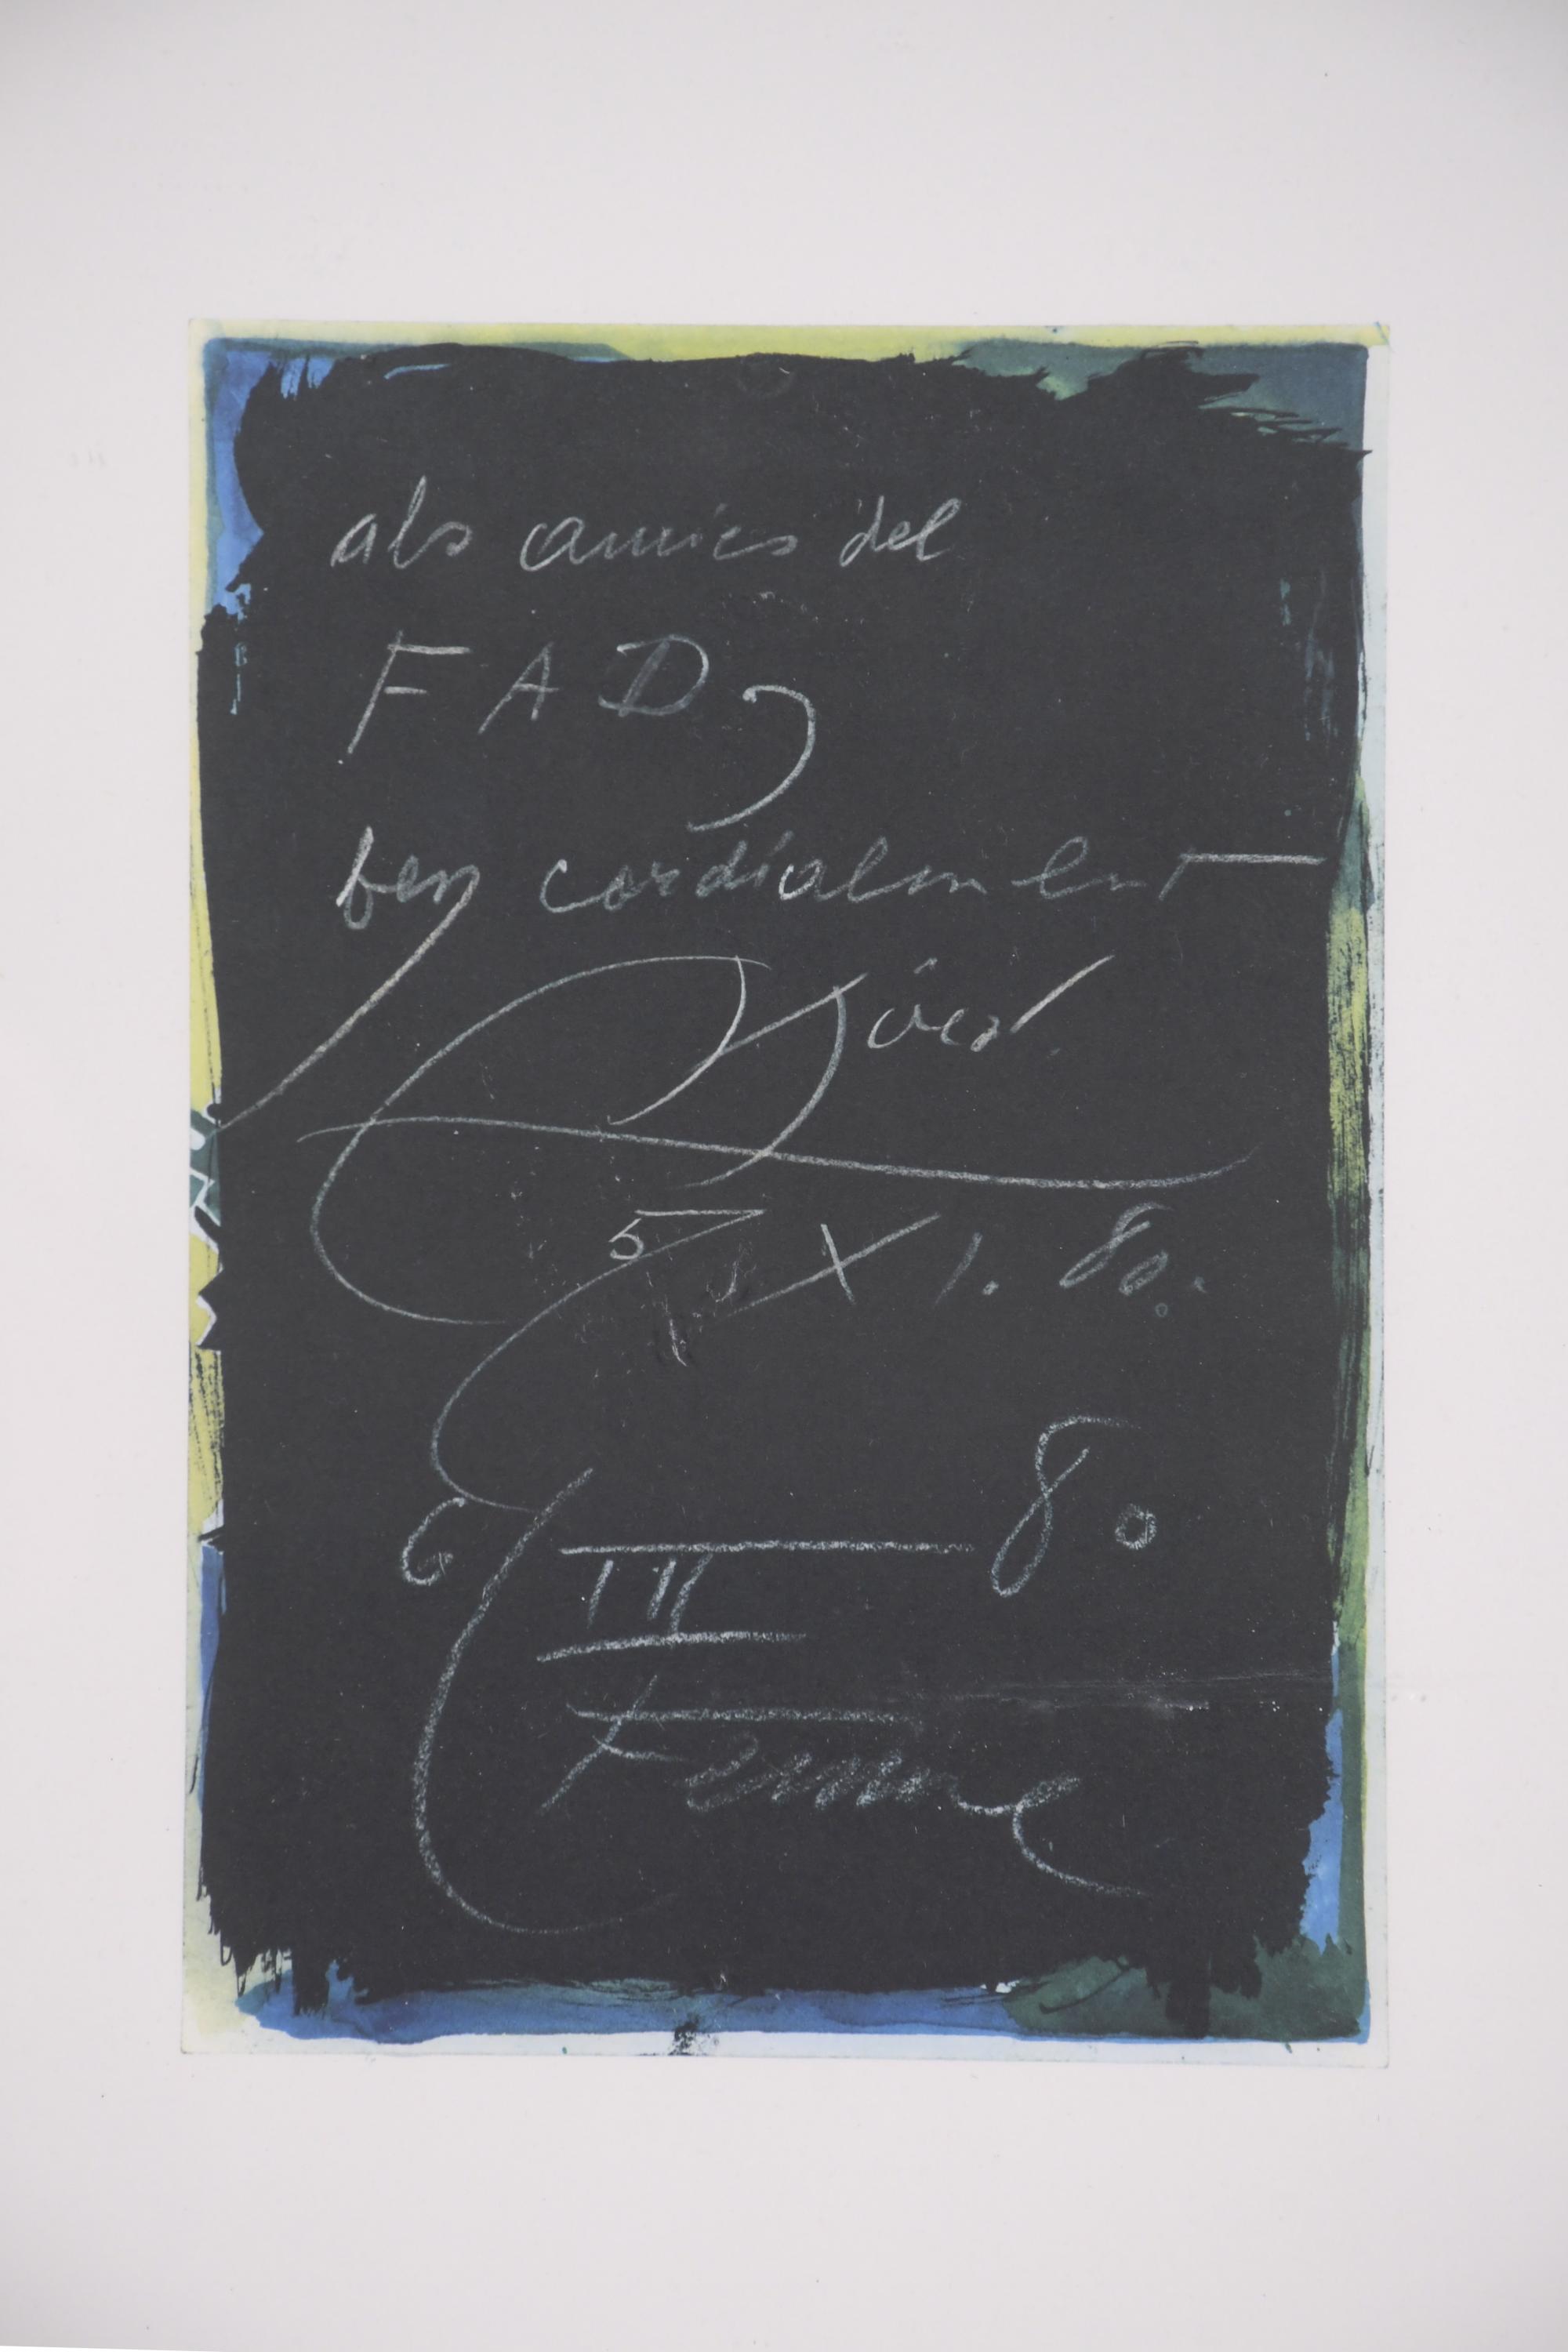 als amics del
FAD,
ben cordialment
Miró.
5/XI.80.
6/III/80
Femme